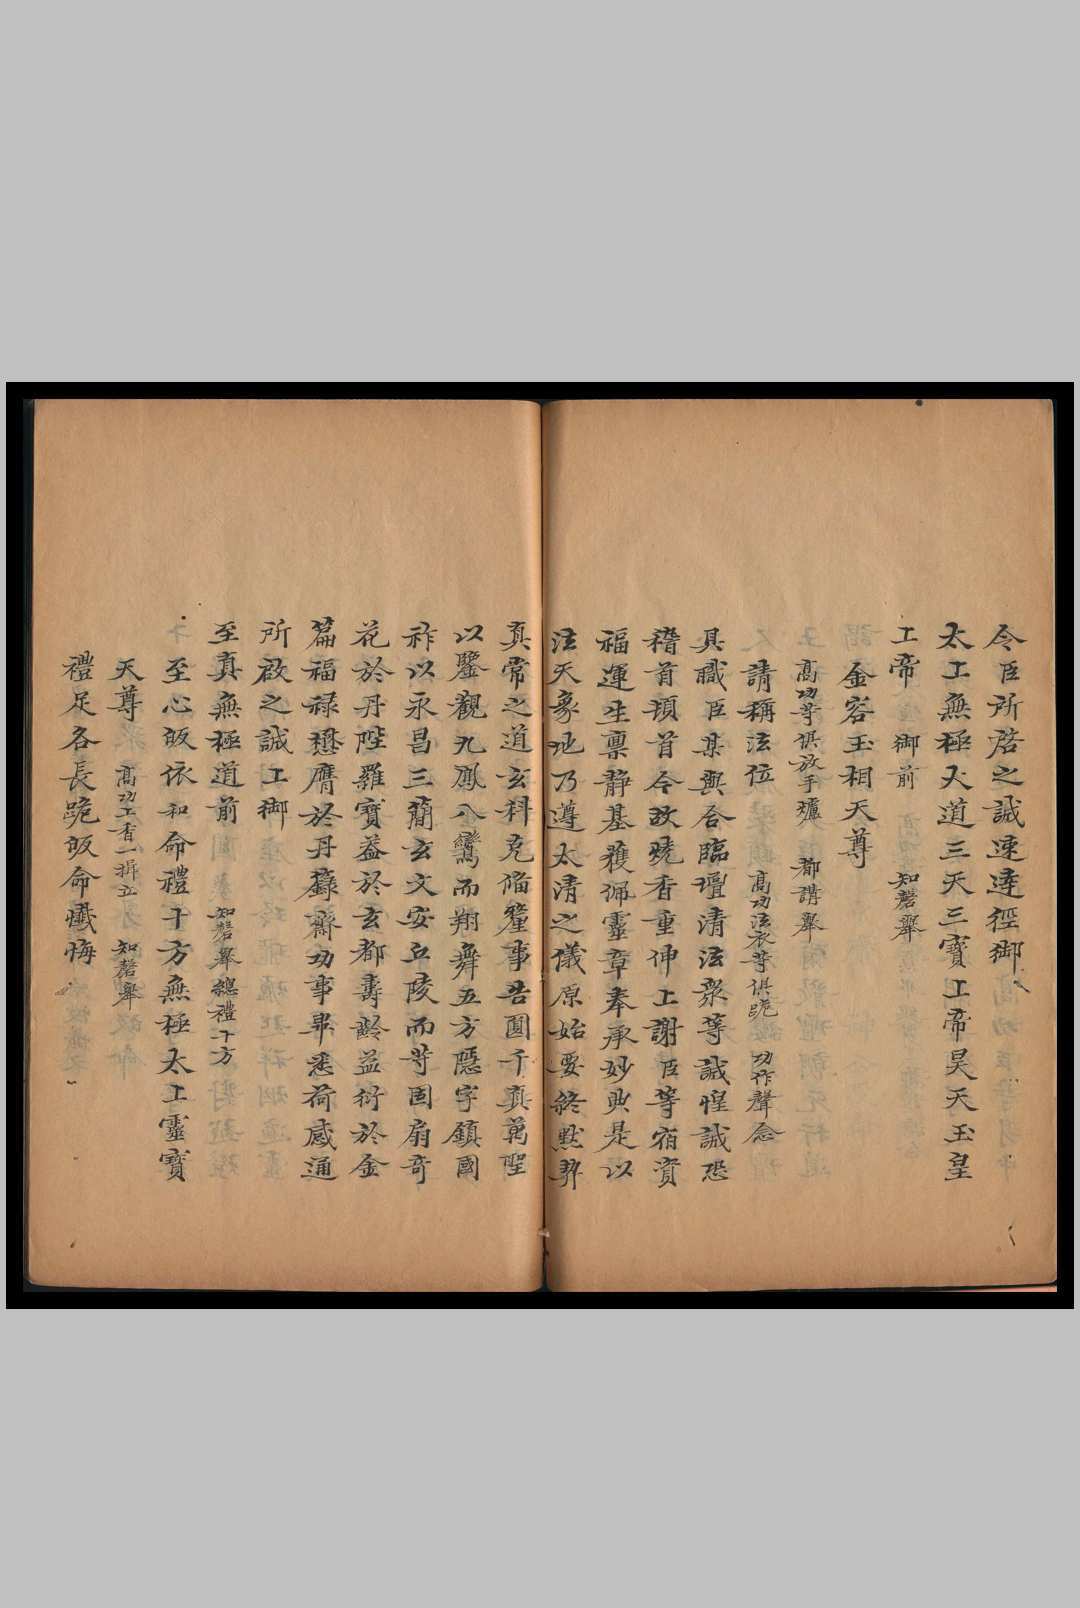 令臣所啓之誠速達徑御
太上無極大道三天三寶上帝昊天玉皇
上帝 御前 知磬舉
金容玉相天尊
高功等俱放手爐 都講舉
請稱法位 高功法衣等俱跪 功作聲念
具職臣某與合臨壇清法衆等誠惶誠恐
稽首頓首今故燒香重伸上謝臣等宿資
福運生稟靜基獲佩靈章奉承妙典是以
法天象地乃遵太清之儀原始要終黙契
真常之道玄科克偹釐事告圓千真萬聖
以鑒觀九鳳八鸞而翔舞五方隱字鎮國
祚以永昌三簡玄文安丘陵而等固扇奇
花於丹陛羅寶益於玄都壽齡益衍於金
篇福禄懋膺於丹籙齋功事畢悉荷感通
所啟之誠上御
至真無極道前 知磬舉總禮十方
至心皈依和命禮十方無極太上靈寶
天尊 高功上香一揖立 知磬舉
禮足各長跪皈命懺悔